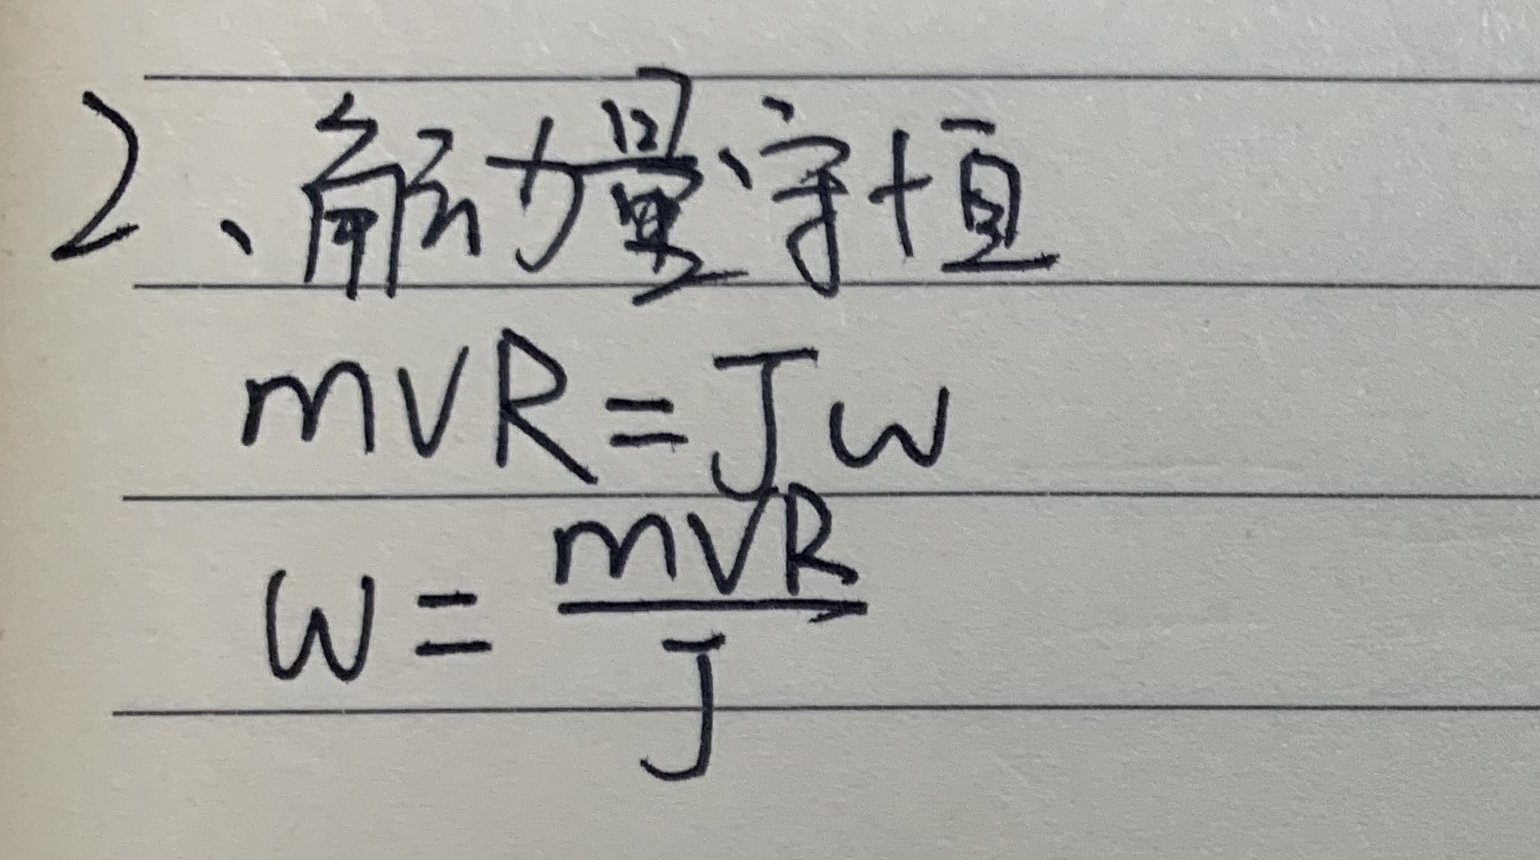 2、角动量守恒
mvR=Jω
ω=mvR/J